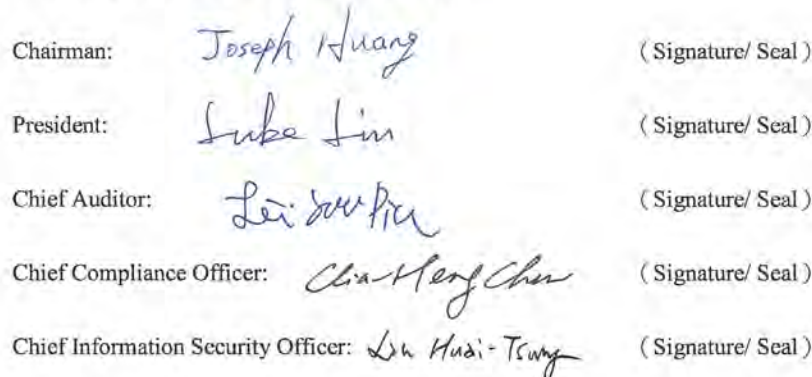 Chairman: Joseph Huang ( Signature/ Seal )
President: Luke Lin ( Signature/ Seal )
Chief Auditor: ( Signature/ Seal )
Chief Compliance Officer: Chia-Heng Chu ( Signature/ Seal )
Chief Information Security Officer: Lin Huai-Tsung ( Signature/ Seal )